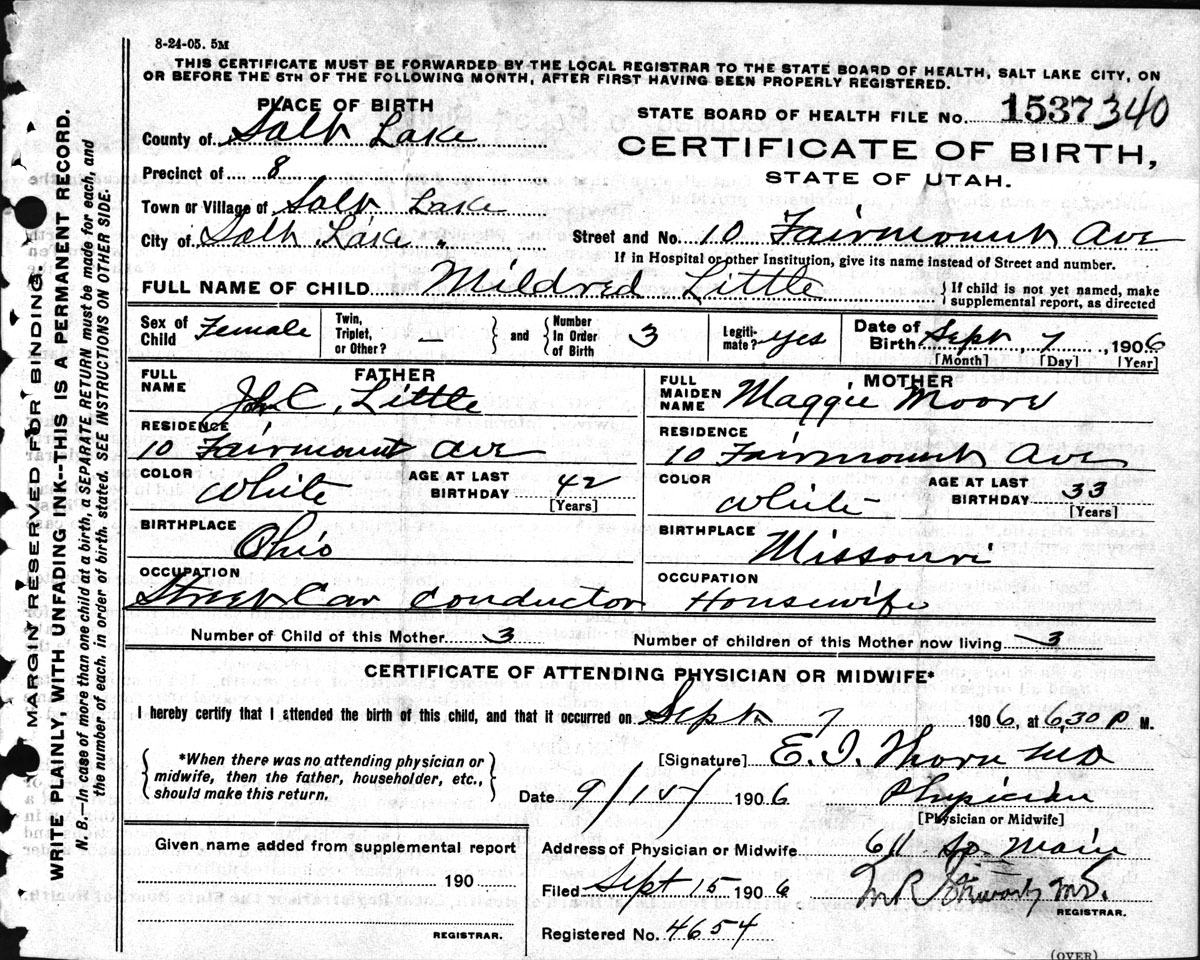 8-24-05. 5M
THIS CERTIFICATE MUST BE FORWARDED BY THE LOCAL REGISTRAR TO THE STATE BOARD OF HEALTH, SALT LAKE CITY, ON
OR BEFORE THE 5TH OF THE FOLLOWING MONTH, AFTER FIRST HAVING BEEN PROPERLY REGISTERED.
PLACE OF BIRTH
STATE BOARD OF HEALTH FILE No. 1537 340
County of Salt Lake
CERTIFICATE OF BIRTH,
Precinct of 8
STATE OF UTAH.
Town or Village of Salt Lake
City of Salt Lake "
Street and No. 10 Fairmount Ave
If in Hospital or other Institution, give its name instead of Street and number.
FULL NAME OF CHILD Mildred Little
If child is not yet named, make
supplemental report, as directed
Sex of Child Female
Twin, Triplet, or Other? —
and
Number In Order of Birth 3
Legitimate? yes
Date of Birth Sept 7, 1906
[Month] [Day] [Year]
FATHER
FULL NAME John C. Little
RESIDENCE
10 Fairmount Ave
COLOR White
AGE AT LAST BIRTHDAY 42
[Years]
BIRTHPLACE Ohio
OCCUPATION
Street Car Conductor
MOTHER
FULL MAIDEN NAME Maggie Moore
RESIDENCE
10 Fairmount Ave
COLOR White
AGE AT LAST BIRTHDAY 33
[Years]
BIRTHPLACE Missouri
OCCUPATION
Housewife
Number of Child of this Mother 3
Number of children of this Mother now living 3
CERTIFICATE OF ATTENDING PHYSICIAN OR MIDWIFE*
I hereby certify that I attended the birth of this child, and that it occurred on Sept 7 1906, at 630 P M.
*When there was no attending physician or
midwife, then the father, householder, etc.,
should make this return.
[Signature] E. I. Thorn MD
Date 9/15/ 1906 Physician
[Physician or Midwife]
Given name added from supplemental report
190
REGISTRAR.
Address of Physician or Midwife 611 So Main
Filed Sept 15 1906
M.D.
REGISTRAR.
Registered No. 4654
(OVER)
MARGIN RESERVED FOR BINDING.
WRITE PLAINLY, WITH UNFADING INK--THIS IS A PERMANENT RECORD.
N. B.—In case of more than one child at a birth, a SEPARATE RETURN must be made for each, and
the number of each, in order of birth, stated. SEE INSTRUCTIONS ON OTHER SIDE.